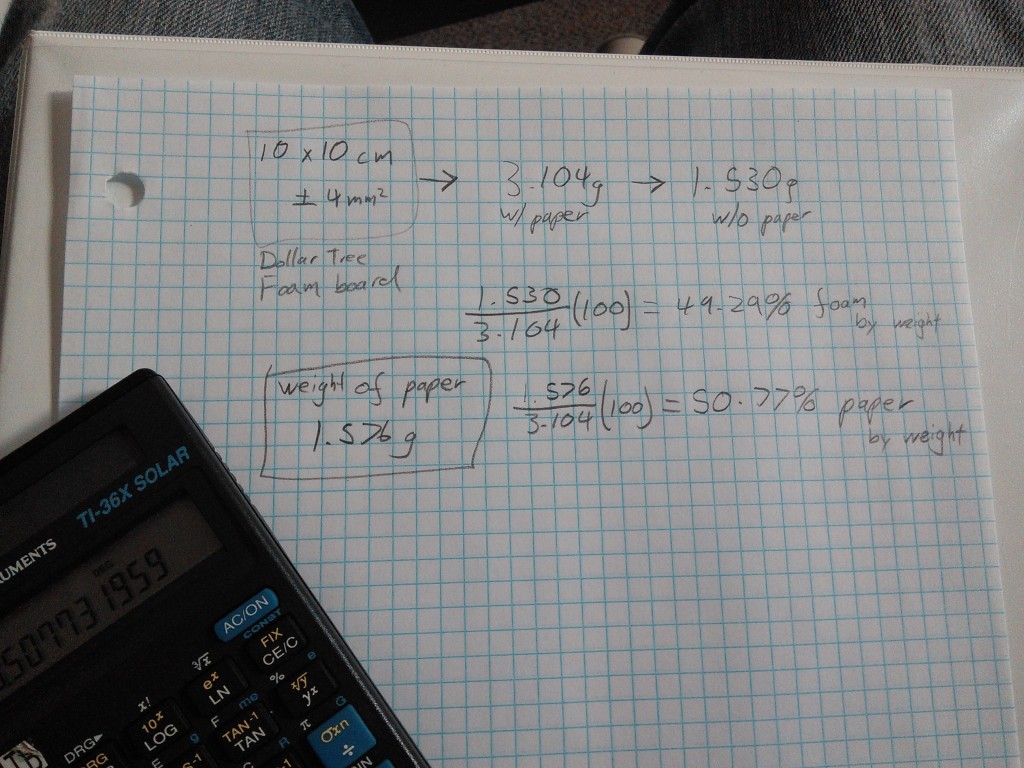 10 x 10 cm
± 4 mm²
→ 3.104g → 1.530g
w/ paper
w/o paper
Dollar Tree
Foam board
1.530
3.104
(100) = 49.29% foam
by weight
weight of paper
1.576 g
1.576
3.104
(100) = 50.77% paper
by weight
TI-36X SOLAR
UMENTS
.507731959
AC/ON
CONST
FIX
CE/C
∛x
eˣ
LN
%
e
ˣ√y
yˣ
x!
10ˣ
LOG
me
F
TAN-1
TAN
π
G
σxn
÷
DRG▶
g
R
E
C